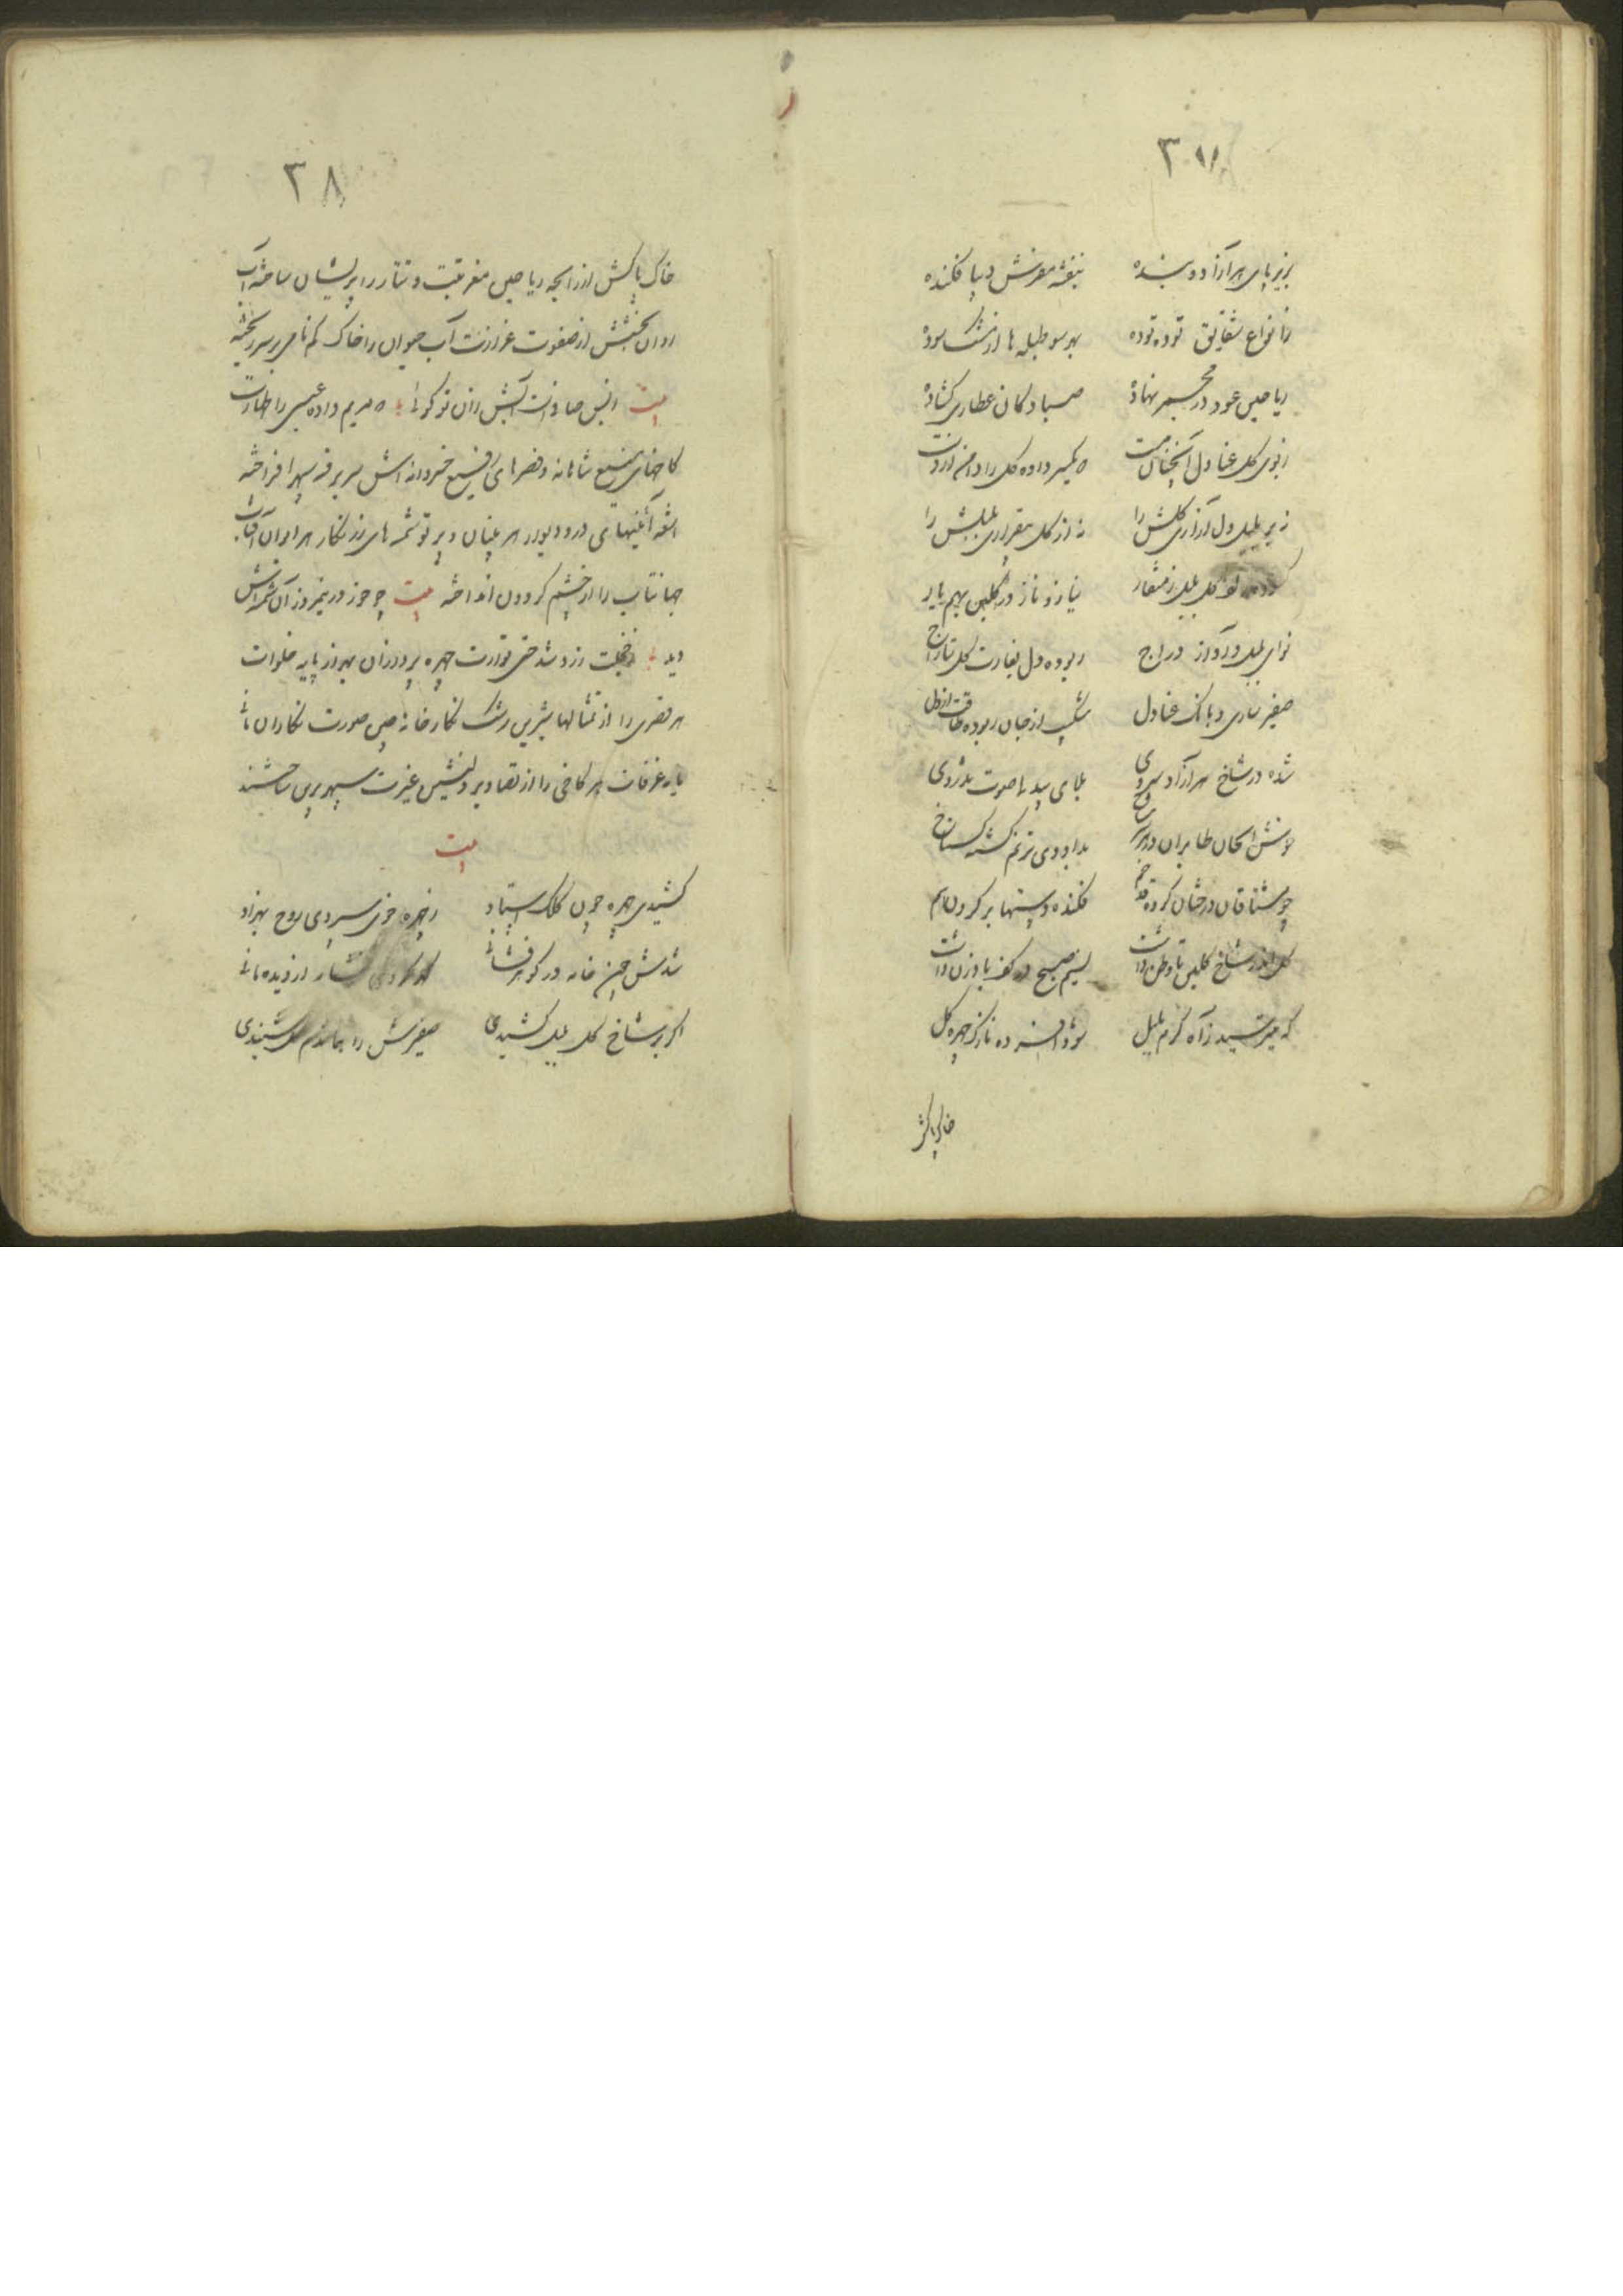 بزیر پای هر آزاد و بنده بنفشه مفرش دیبا فکنده
ز انواع شقایق توده توده بهر سو طبله ها از مشک سوده
ریاحین عود در مجمر نهاده صبا دکان عطاری کشاده
ز بوی کل عنادل آنچنان مست
نه بر بلبل دل آزاری کلش را نه از کل بیقراری بلبلش را
نیاز و ناز در کلبن بهم یار
نوای بلبل و آواز دراج ربوده دل بغارت کل بتاراج
صفیر ساری و بانک عنادل شکیب از جان ربوده طاقت از دل
شده در شاخ هر آزاد سروی
خوش الحان طایران در هر شاخ بداودی ترنم کشته کستاخ
چو مشتاقان درختان کرده قد خم فکنده دستها بر کردن هم
کل اندر شاخ کلبن تا وطن داشت نسیم صبح در کف بادزن داشت
که میترسید ز آه کرم بلبل شود افسرده نازک چهره کل
خاک پاکش
۳۸
خاک پاکش از رایحه ریاحین مغز تبت و تتار را پریشان ساخته آب
روان بخشش از صفوت عزازت آب حیوان را خاک کم نامی بر سر ریخته
بیت مریم داده عیسی را طهارت
کاخهای منیع شاهانه و قصرهای رفیع خسروانه اش سر بر فرق سپهر افراخته
اشعه آئینهای در و دیوار هر بنیان و پرتو شمسه های زرنکار هر ایوان آفتاب
جهانتاب را از چشم کردون انداخته بیت چو خور در نیمروز آن شمسه اش
دید ز خجلت زرد شد حتی توارت چهره پردازان
هر قصری را از تمثالهای شیرین رشک نکارخانه چین صورت نکاران
غرفات هر کاخی را از تصاویر دلنشین غیرت سپهر برین ساختند
بیت
کشیدی چهره چون کلک استاد ز چهره خوی سپردی روح بهزاد
شدش چین خامه در کوهر فشانی کهر کردی نثار از دیده مانی
اکر بر شاخ کل بلبل کشیدی صفیرش را شنیدی